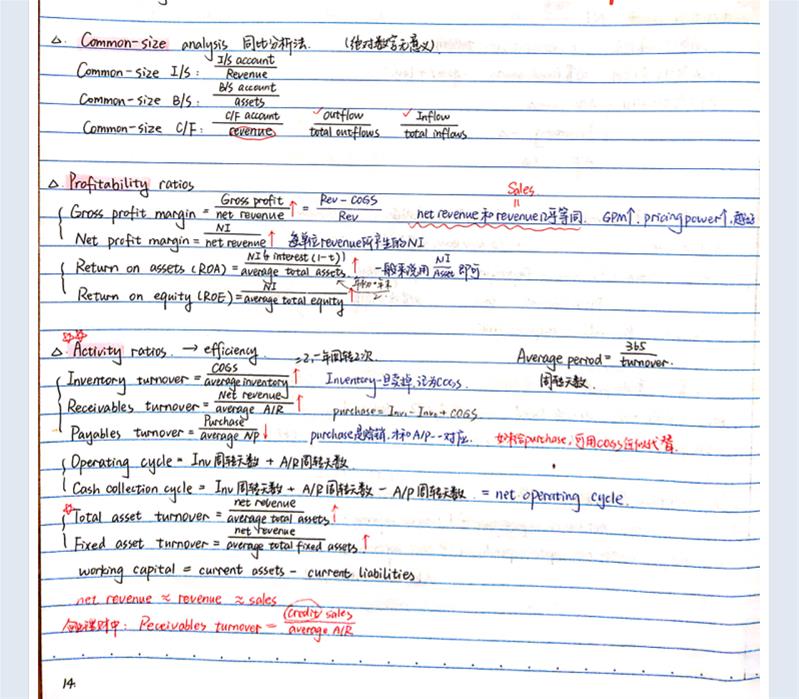 △. Common-size analysis 同比分析法. (绝对数字无意义)
Common-size I/S: I/S account / Revenue
Common-size B/S: B/S account / assets
Common-size C/F: C/F account / revenue ✓outflow / total outflows ✓Inflow / total inflows
△ Profitability ratios
Sales
Gross profit margin = Gross profit / net revenue ↑ = Rev - COGS / Rev net revenue和revenue几乎等同. GPM↑, pricing power↑, 越好
Net profit margin = NI / net revenue ↑ 每单位revenue所产生的NI
Return on assets (ROA) = NI + interest (1-t) / average total assets ↑ 一般来说用 NI / Asset 即可
Return on equity (ROE) = NI / average total equity ↑
△. Activity ratios. → efficiency. =2, 一年回转2次. Average period = 365 / turnover.
Inventory turnover = COGS / average inventory ↑ Inventory一旦卖掉, 记为COGS. 周转天数.
Receivables turnover = Net revenue / average A/R ↑ purchase = Inv₁ - Inv₀ + COGS
Payables turnover = Purchase / average ↓ purchase是赊销, 才和A/P一一对应. purchase, 可用COGS近似代替.
Operating cycle = Inv周转天数 + A/R周转天数
Cash collection cycle = Inv周转天数 + A/R周转天数 - A/P周转天数 = net operating cycle.
☆Total asset turnover = net revenue / average total assets ↑
Fixed asset turnover = net revenue / average total fixed assets ↑
working capital = current assets - current liabilities
net revenue ≈ revenue ≈ sales
Receivables turnover = (credit) sales / average A/R
14.